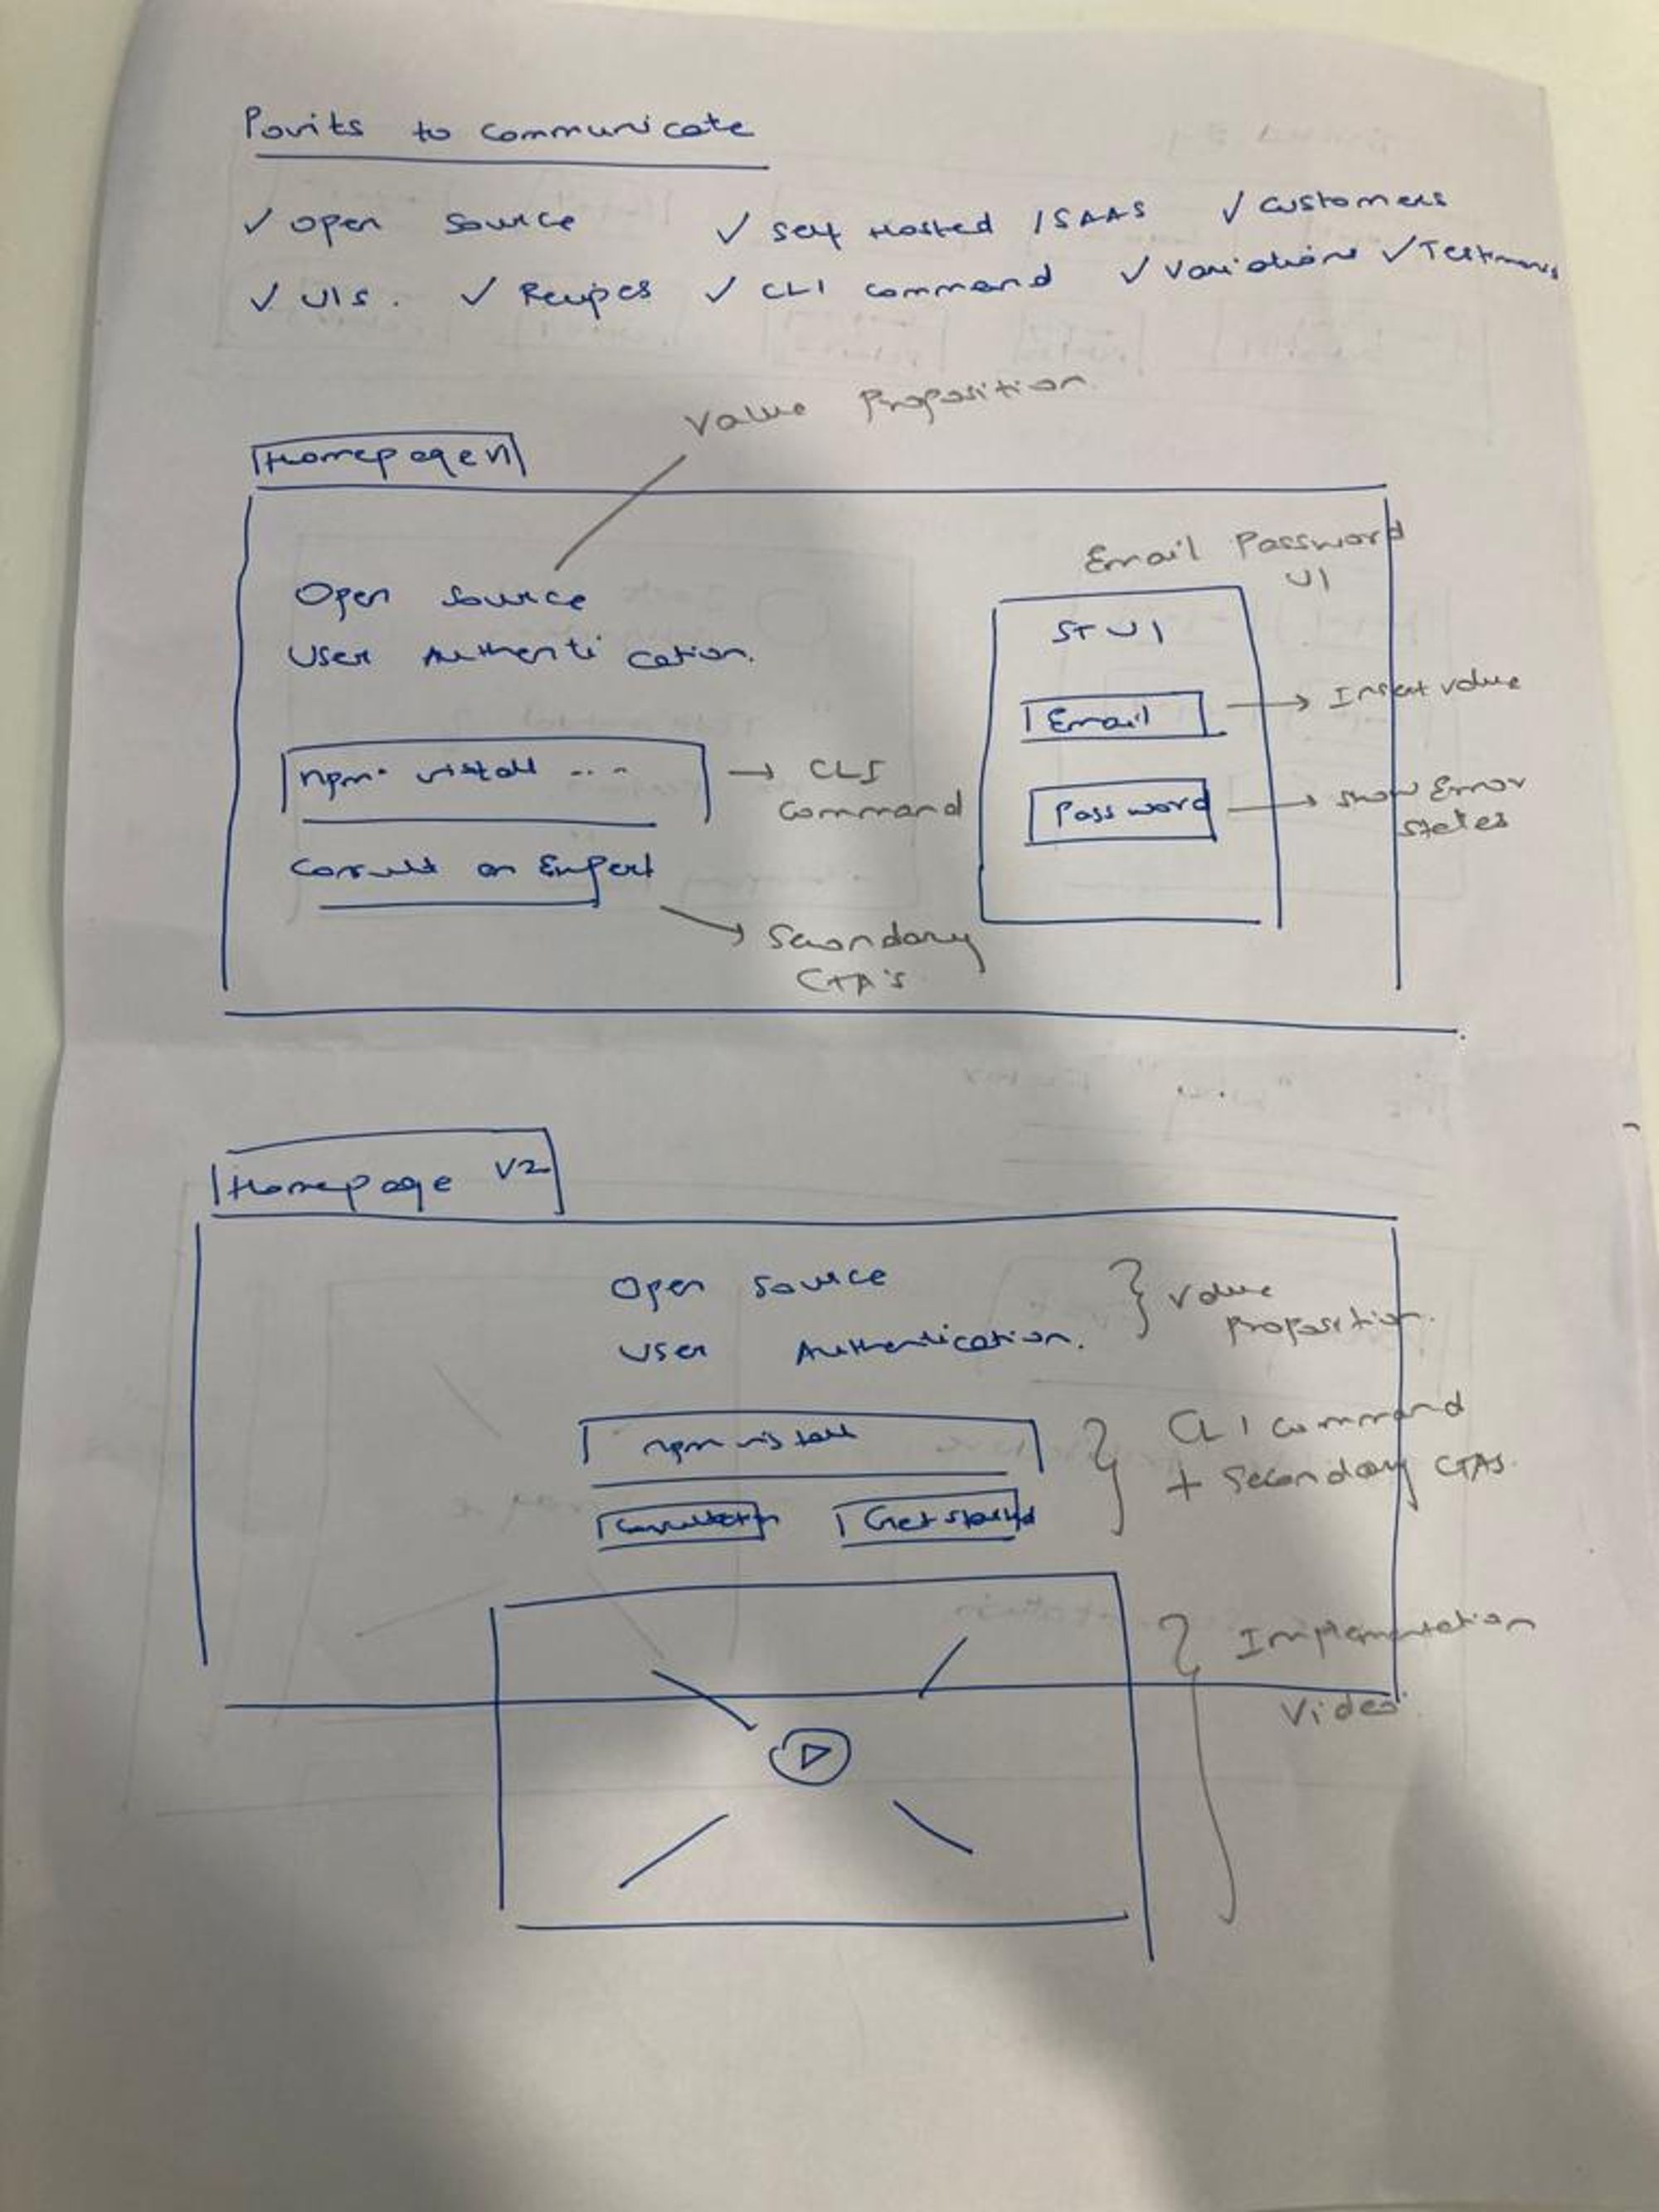 Points to communicate
✓ open source ✓ Self Hosted / SAAS ✓ customers
✓ UIs. ✓ Recipes ✓ CLI command ✓ Variations ✓ Testimonis
Value Proposition
Homepage V1
Open Source
User Authentication.
npm install ...
→ CLI
Command
Consult an Expert
→ Secondary
CTA's
Email Password
UI
ST UI
Email
→ Insert value
Password
→ Show Error
States
Homepage V2
Open Source
User Authentication.
Value
Proposition.
npm install
Consultation
Get started
CLI command
+ Secondary CTAs.
Implementation
Video.